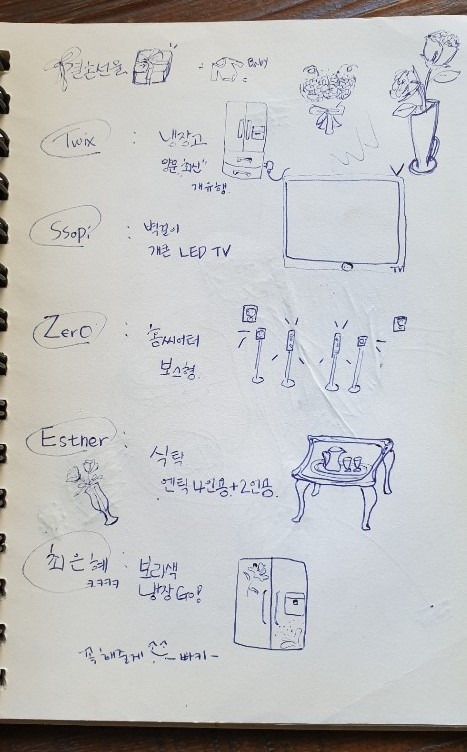 결혼선물 - Baby
Twix : 냉장고
양문 "최신"
개유행.
Ssopi : 벽걸이
개큰 LED TV
TV
Zero : 홈씨어터
보스형.
Esther : 식탁
엔틱 4인용+2인용.
최은혜 : 보라색
ㅋㅋㅋㅋ 냉장Go!
꼭 해줄게 빠키~